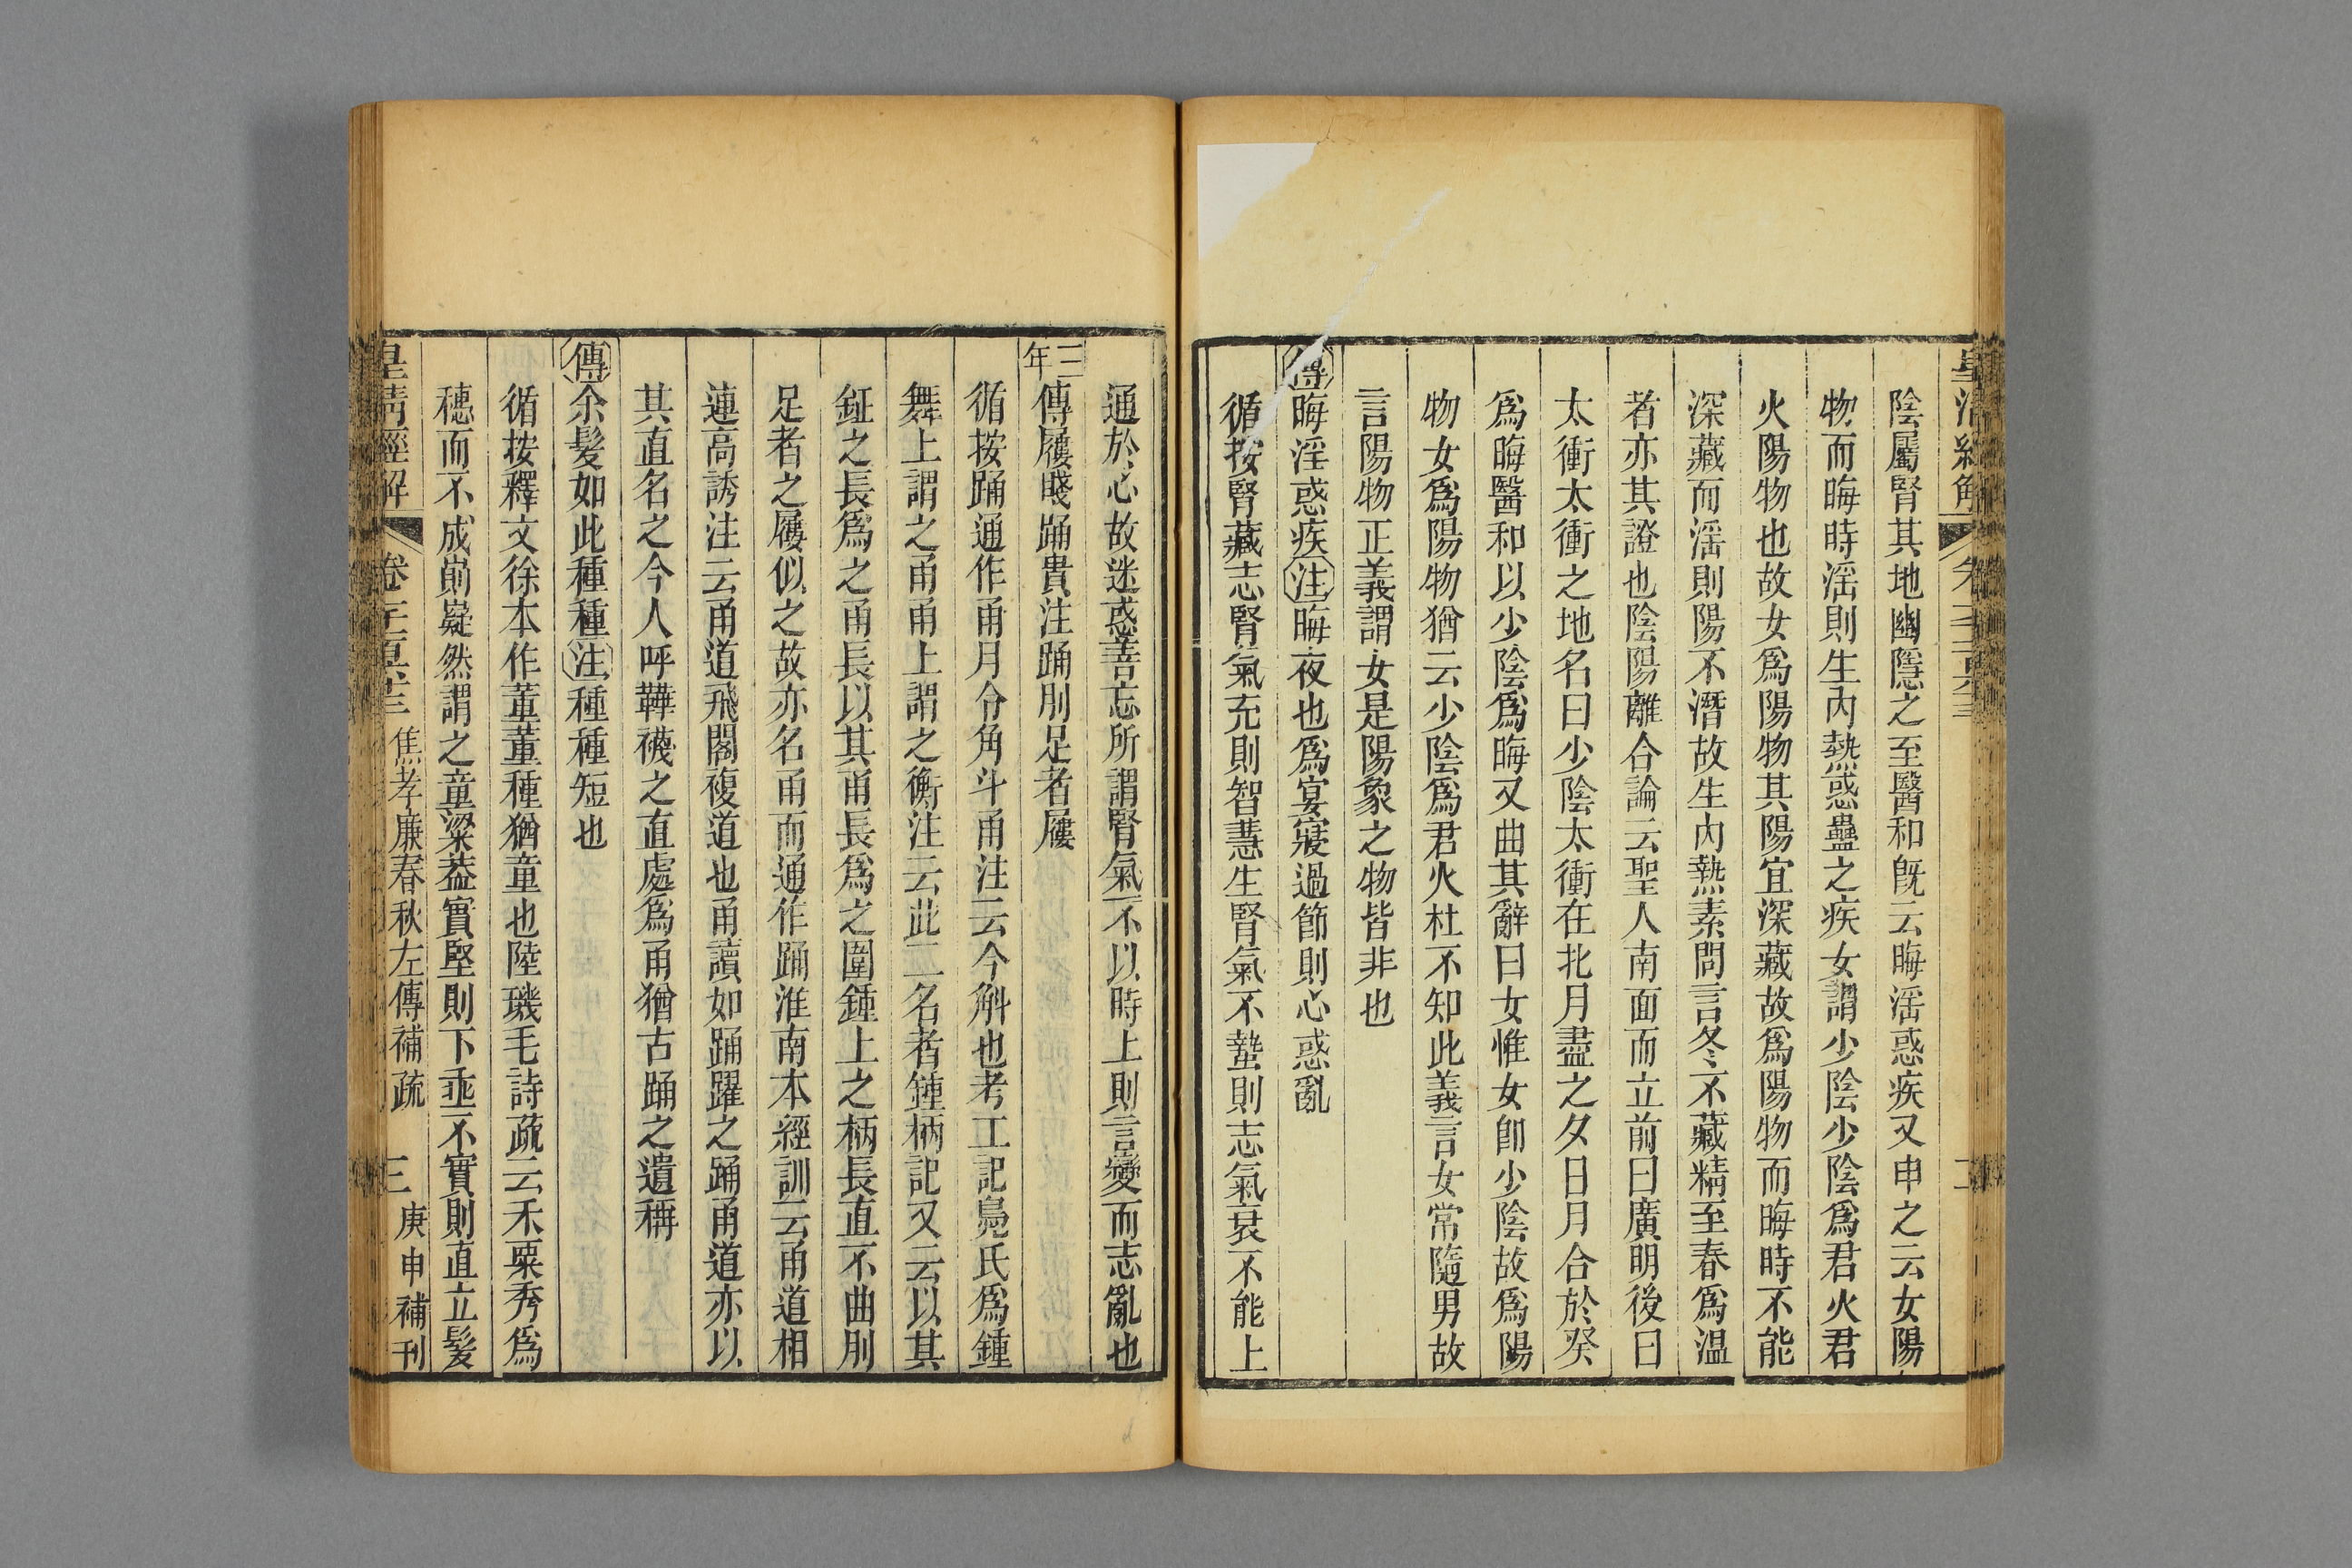 陰屬腎其地幽隱之至醫和旣云晦淫惑疾又申之云女陽
物而晦時淫則生內熱惑蠱之疾女謂少陰少陰爲君火君
火陽物也故女爲陽物其陽宜深藏故爲陽物而晦時不能
深藏而淫則陽不潛故生內熱素問言冬不藏精至春爲温
者亦其證也陰陽離合論云聖人南面而立前曰廣明後曰
太衝太衝之地名曰少陰太衝在北月盡之夕日月合於癸
爲晦醫和以少陰爲晦又曲其辭曰女惟女卽少陰故爲陽
物女爲陽物猶云少陰爲君火杜不知此義言女常隨男故
言陽物正義謂女是陽象之物皆非也
傳晦淫惑疾注晦夜也爲宴寢過節則心惑亂
循按腎藏志腎氣充則智慧生腎氣不蟄則志氣衰不能上
通於心故迷惑善忘所謂腎氣不以時上則言變而志亂也
三年傳屨賤踊貴注踊刖足者屨
循按踊通作甬月令角斗甬注云今斛也考工記鳧氏爲鍾
舞上謂之甬甬上謂之衡注云此二名者鍾柄記又云以其
鉦之長爲之甬長以其甬長爲之圍鍾上之柄長直不曲刖
足者之屨似之故亦名甬而通作踊淮南本經訓云甬道相
連高誘注云甬道飛閣複道也甬讀如踊躍之踊甬道亦以
其直名之今人呼鞾襪之直處爲甬猶古踊之遺稱
傳余髮如此種種注種種短也
循按釋文徐本作董董種猶童也陸璣毛詩疏云禾粟秀爲
穗而不成崱嶷然謂之童粱葢實堅則下垂不實則直立髮
皇清經解 卷 焦孝廉春秋左傳補疏 三 庚申補刊